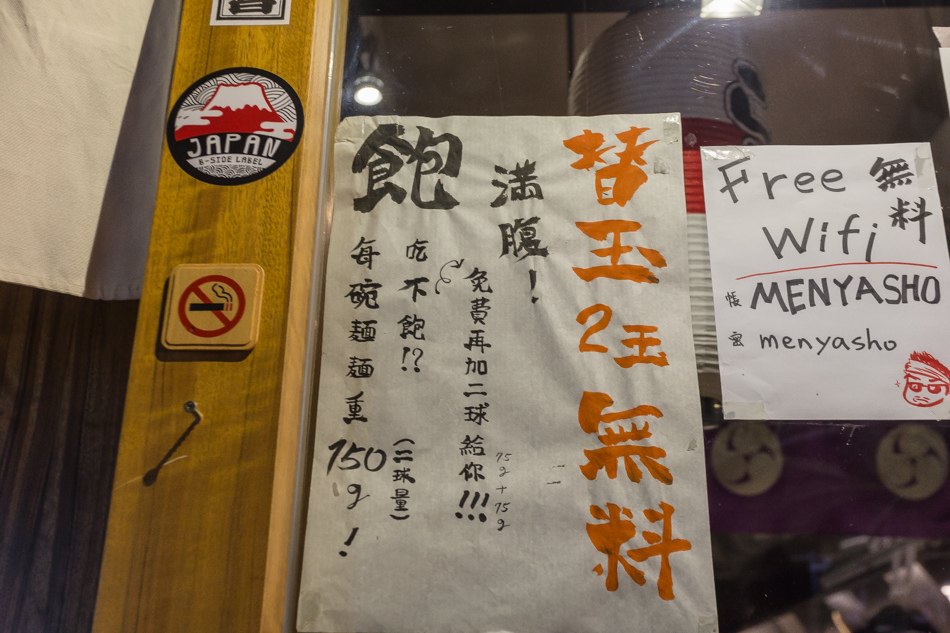 JAPAN
B-SIDE LABEL
替玉2玉無料
満腹!
免費再加二球給你!!!
75g+75g
飽
吃不飽!?
(二球量)
每碗麵麵重150g!
Free 無料
Wifi
帳 MENYASHO
密 menyasho